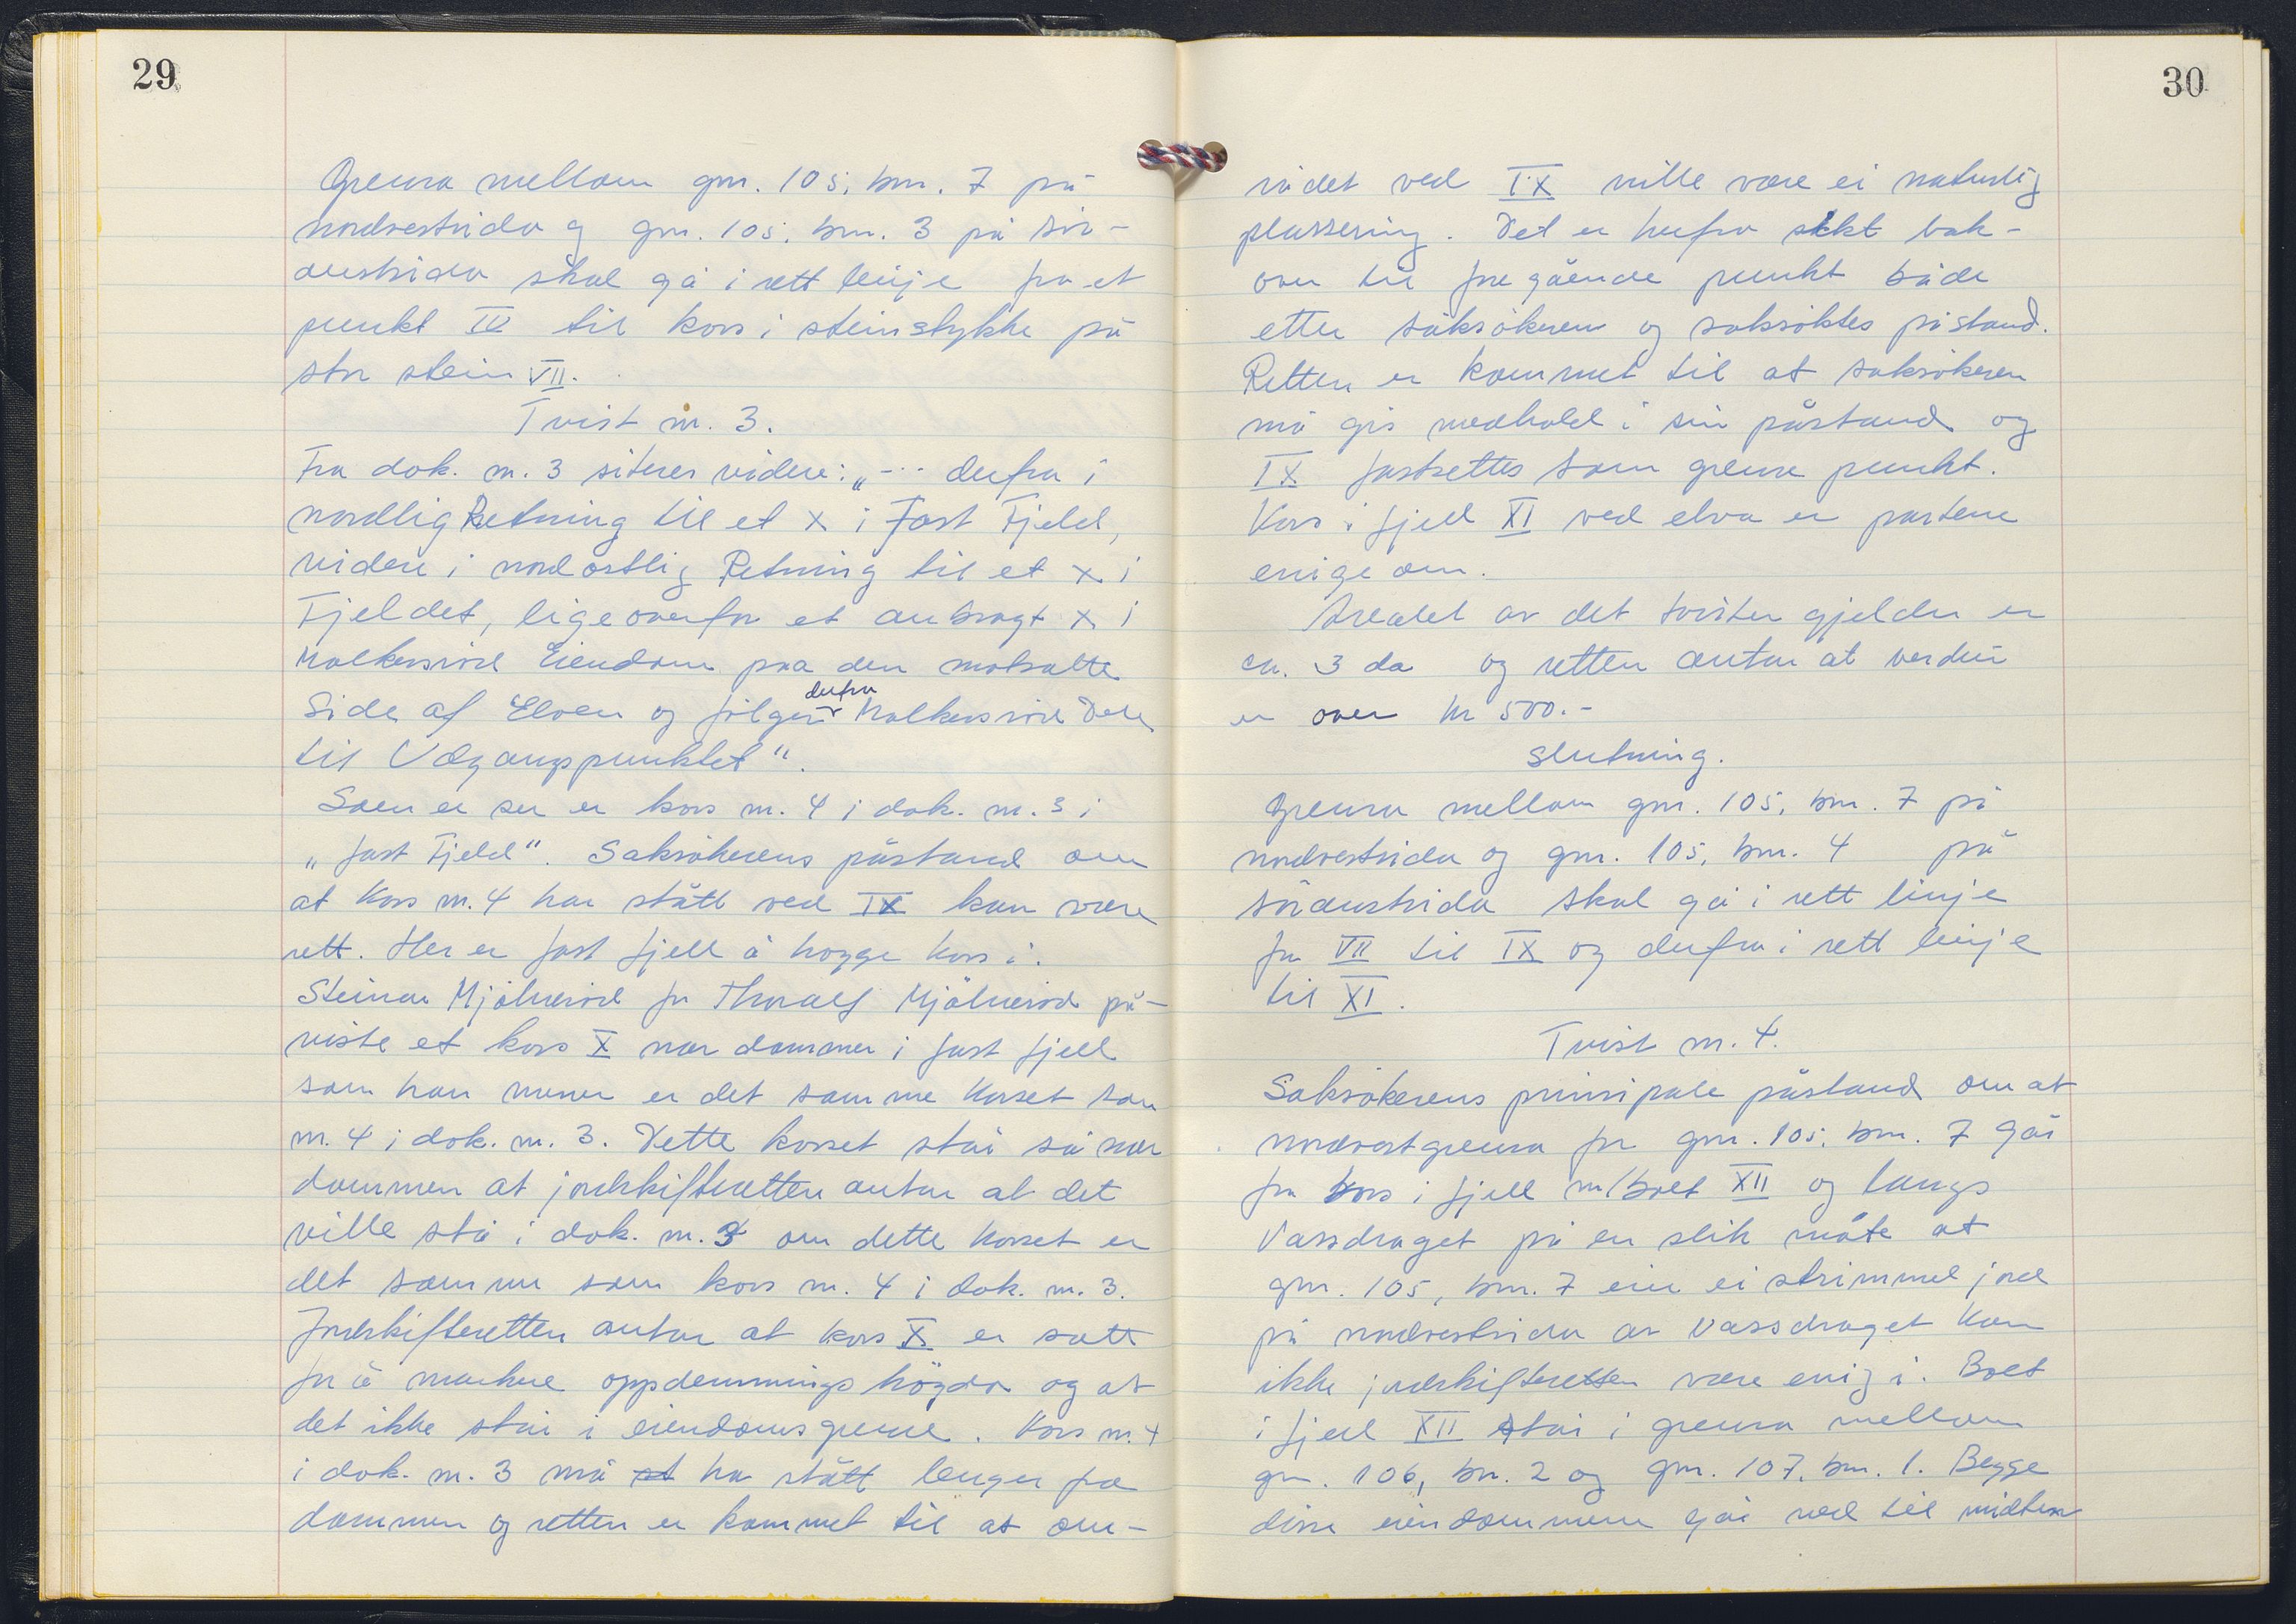 29
Grensa mellom gnr. 105, bnr. 7 på
nordvestsida og gnr. 105, bnr. 3 på sör-
austsida skal gå i rett linje fra et
punkt IV til kors i steinstykke på
stor stein VII.
Tvist nr. 3.
Fra dok. nr. 3 siteres videre: „--- derfra i
nordlig Retning til et x i Fast Fjeld,
videre i nordostlig Retning til et x i
Fjeldet, ligeoverfor et anbragt x i
Eiendom paa den motsatte
Side af Elven og følger derfra Dele
til Udgangspunktet".
Som en ser er kors nr. 4 i dok. nr. 3 i
„fast Fjeld". Saksökerens påstand om
at kors nr. 4 har stått ved IX kan være
rett. Her er fast fjell å hogge kors i.
Steinar Mjölneröd for Thoralf Mjölneröd på-
viste et kors X nær dammen i fast fjell
som han mener er det samme korset som
nr. 4 i dok. nr. 3. Dette korset står så nær
dammen at jordskifteretten antar at det
ville stå i dok. nr. 3 om dette korset er
det samme som kors nr. 4 i dok. nr. 3.
Jordskifteretten antar at kors X er satt
for å markere oppdemmingshögda og at
det ikke står i eiendomsgrense. Kors nr. 4
i dok. nr. 3 må st ha stått lenger fra
dammen og retten er kommet til at om-
30
rådet ved IX ville være ei naturlig
plassering. Det er herfra sikt bak-
over til foregående punkt både
etter saksökeren og saksöktes påstand.
Retten er kommet til at saksökeren
må gis medhold i sin påstand og
IX fastsettes som grensepunkt.
Kors i fjell XI ved elva er partene
enige om.
Arealet av det tvisten gjelder er
ca. 3 da og retten antar at verdien
er over kr 500.-
Slutning.
Grensa mellom gnr. 105, bnr. 7 på
nordvestsida og gnr. 105, bnr. 4 på
söraustsida skal gå i rett linje
fra VII til IX og derfra i rett linje
til XI.
Tvist nr. 4.
Saksökerens prinsipale påstand om at
nordvestgrensa for gnr. 105, bnr. 7 går
fra kors i fjell m/bolt XII og langs
Vassdraget på en slik måte at
gnr. 105, bnr. 7 eier ei strimmel jord
på nordvestsida av Vassdraget kan
ikke jordskifteretten være enig i. Bolt
i fjell XII står i grensa mellom
gnr. 106, bnr. 2 og gnr. 107, bnr. 1. Begge
disse eiendommene går ned til midten